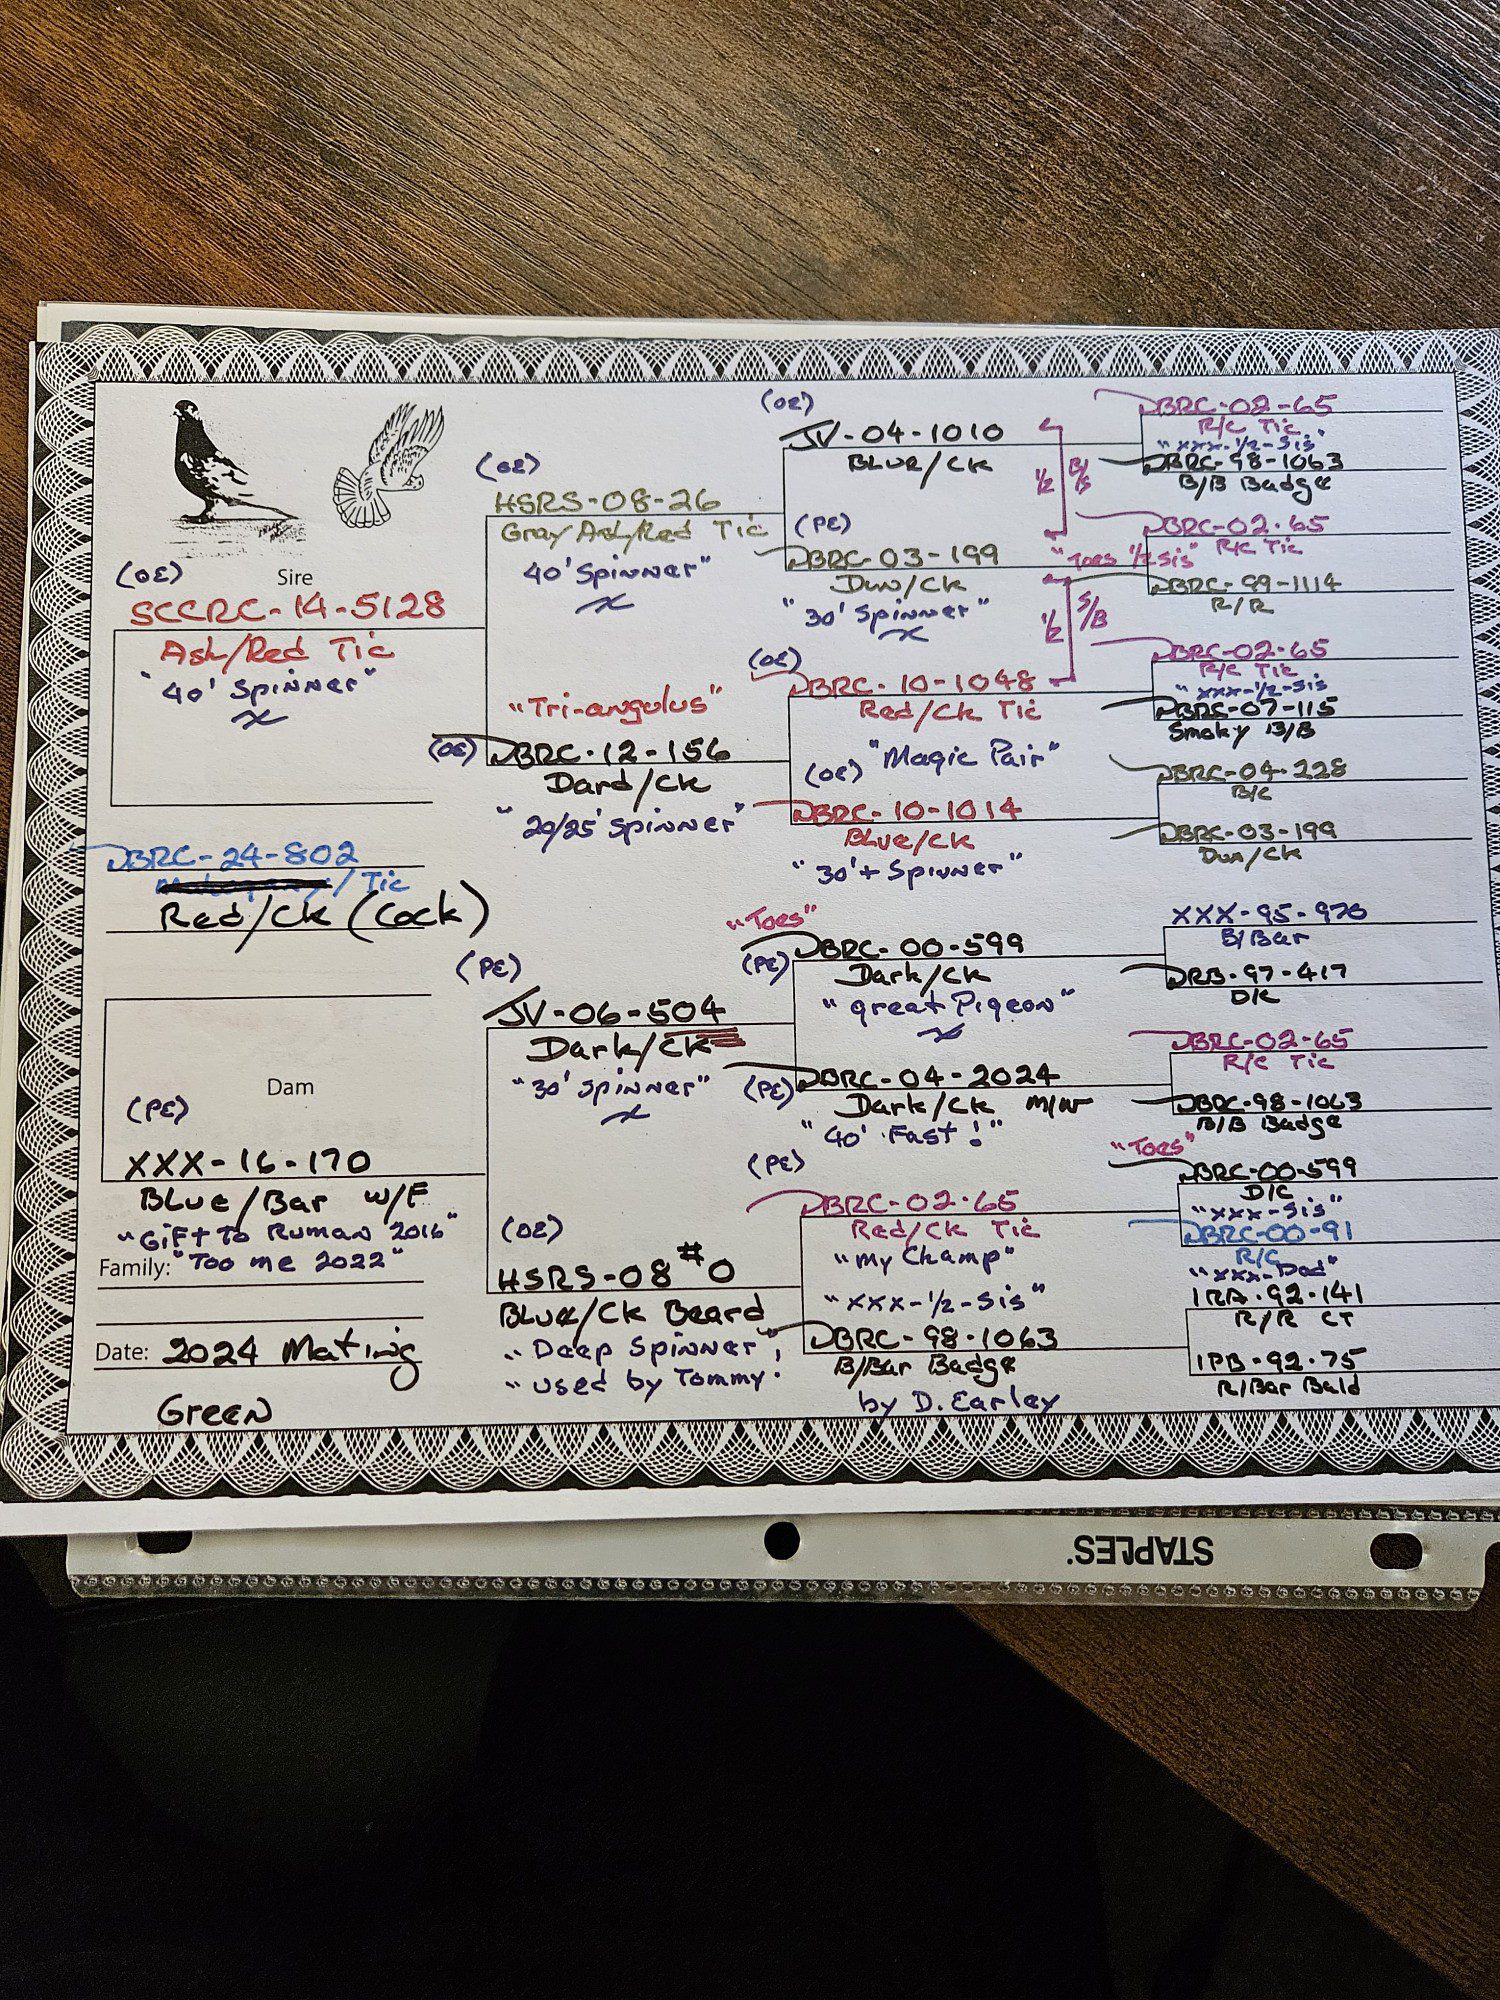 (OE)
Sire
SCCRC-14-5128
Ash/Red Tic
"40' Spinner"
DBRC-24-802
/ Tic
Red/Ck (Cock)
Dam
(PE)
XXX-16-170
Blue/Bar W/F
"Gift To Ruman 2016"
Family: "Too me 2022"
Date: 2024 Mating
Green
(OE)
HSRS-08-26
Gray Ash/Red Tic
40' Spinner"
"Tri-angulus"
(OE) DBRC-12-156
Dard/Ck
"20/25' Spinner"
(PE)
JV-06-504
Dark/Ck
"30' Spinner"
(OE)
HSRS-08#0
Blue/Ck Beard
"Deep Spinner"
"used by Tommy"
(OE)
JV-04-1010
Blue/Ck
(PE)
DBRC-03-199
Dun/Ck
"30' Spinner"
1/2 B/S
"Toes 1/2 Sis"
1/2 S/B
(OE)
DBRC-10-1048
Red/Ck Tic
"Magic Pair"
(OE)
DBRC-10-1014
Blue/Ck
"30'+ Spinner"
"Toes"
(PE) DBRC-00-599
Dark/Ck
"great Pigeon"
(PE) DBRC-04-2024
Dark/Ck M/W
"40' Fast!"
(PE)
DBRC-02-65
Red/Ck Tic
"My Champ"
"xxx-1/2-Sis"
DBRC-98-1063
B/Bar Badge
by D. Earley
DBRC-02-65
R/C Tic
"xxx-1/2-Sis"
DBRC-98-1063
B/B Badge
DBRC-02-65
R/C Tic
DBRC-99-1114
R/R
DBRC-02-65
R/C Tic
"xxx-1/2-Sis
DBRC-07-115
Smoky B/B
DBRC-04-228
B/C
DBRC-03-199
Dun/Ck
XXX-95-970
B/Bar
DRB-97-417
D/C
DBRC-02-65
R/C Tic
DBRC-98-1063
B/B Badge
"Toes"
DBRC-00-599
D/C
"xxx-Sis"
DBRC-00-91
R/C
"xxx-Dad"
IRA-92-141
R/R CT
IPB-92-75
R/Bar Bald
STAPLES